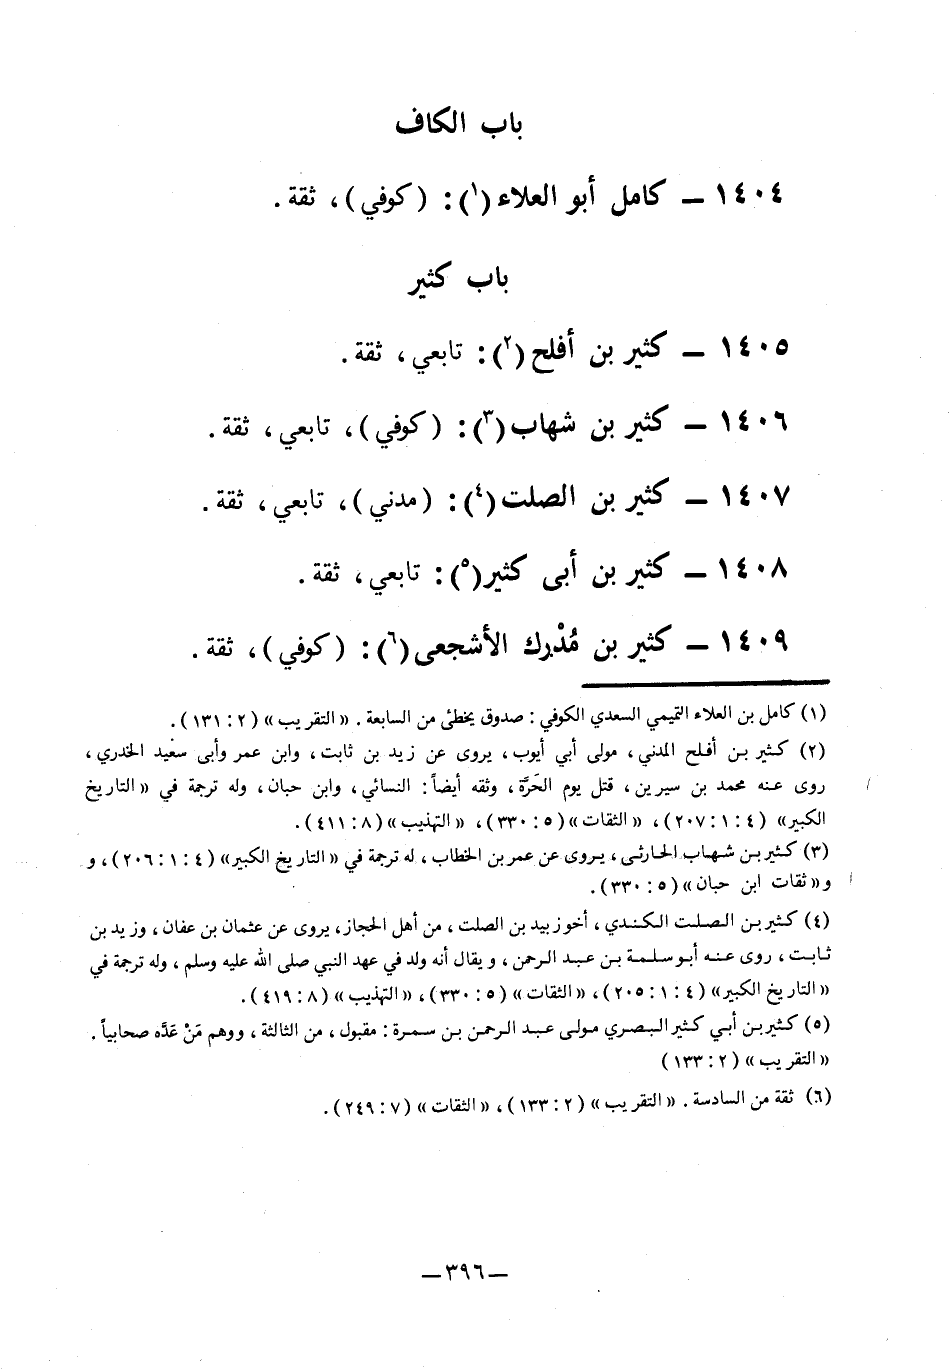 باب الكاف
١٤٠٤ — كامل أبو العلاء (١): (كوفي)، ثقة.
باب كثير
١٤٠٥ — كثير بن أفلح (٢): تابعي، ثقة.
١٤٠٦ — كثير بن شهاب (٣): (كوفي)، تابعي، ثقة.
١٤٠٧ — كثير بن الصلت (٤): (مدني)، تابعي، ثقة.
١٤٠٨ — كثير بن أبى كثير (٥): تابعي، ثقة.
١٤٠٩ — كثير بن مُدْرِك الأشجعى (٦): (كوفي)، ثقة.
(١) كامل بن العلاء التميمي السعدي الكوفي: صدوق يخطئ من السابعة. «التقريب» (٢: ١٣١).
(٢) كثير بن أفلح المدني، مولى أبي أيوب، يروى عن زيد بن ثابت، وابن عمر وأبى سعيد الخدري،
روى عنه محمد بن سيرين، قتل يوم الحَرَّة، وثقه أيضاً: النسائي، وابن حبان، وله ترجمة في «التاريخ
الكبير» (٤: ١: ٢٠٧)، «الثقات» (٥: ٣٣٠)، «التهذيب» (٨: ٤١١).
(٣) كثير بن شهاب الحارثى، يروى عن عمر بن الخطاب، له ترجمة في «التاريخ الكبير» (٤: ١: ٢٠٦)، و
و«ثقات ابن حبان» (٥: ٣٣٠).
(٤) كثير بن الصلت الكندي، أخو زبيد بن الصلت، من أهل الحجاز، يروى عن عثمان بن عفان، وزيد بن
ثابت، روى عنه أبو سلمة بن عبد الرحمن، ويقال أنه ولد في عهد النبي صلى الله عليه وسلم، وله ترجمة في
«التاريخ الكبير» (٤: ١: ٢٠٥)، «الثقات» (٥: ٣٣٠)، «التهذيب» (٨: ٤١٩).
(٥) كثير بن أبي كثير البصري مولى عبد الرحمن بن سمرة: مقبول، من الثالثة، ووهم مَنْ عَدَّه صحابياً.
«التقريب» (٢: ١٣٣)
(٦) ثقة من السادسة. «التقريب» (٢: ١٣٣)، «الثقات» (٧: ٢٤٩).
—٣٩٦—